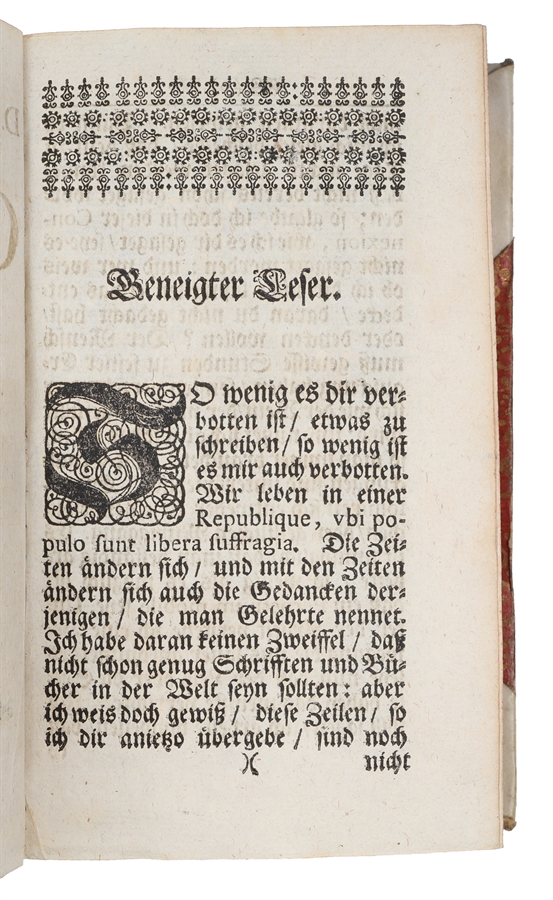 Geneigter Leser.
SO wenig es dir ver-
botten ist / etwas zu
schreiben / so wenig ist
es mir auch verbotten.
Wir leben in einer
Republique, vbi po-
pulo sunt libera suffragia. Die Zei-
ten ändern sich / und mit den Zeiten
ändern sich auch die Gedancken der-
jenigen / die man Gelehrte nennet.
Ich habe daran keinen Zweiffel / daß
nicht schon genug Schrifften und Bü-
cher in der Welt seyn sollten: aber
ich weis doch gewiß / diese Zeilen / so
ich dir anietzo übergebe / sind noch
)( nicht